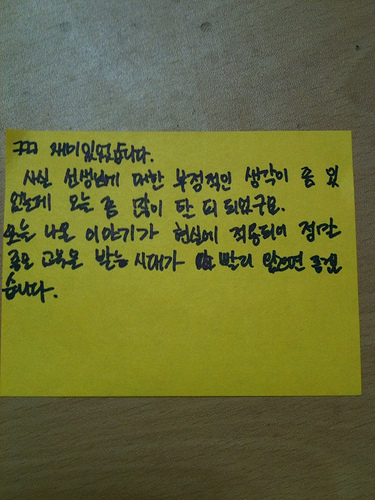 ㅋㅋㅋ 재미있었습니다.
사실 선생님에 대한 부정적인 생각이 좀 있
었는데 오늘 좀 많이 반 되었구요.
오늘 나온 이야기가 현실에 적용되어 정말
좋은 교육을 받는 시대가 빨리 왔으면 좋겠
습니다.